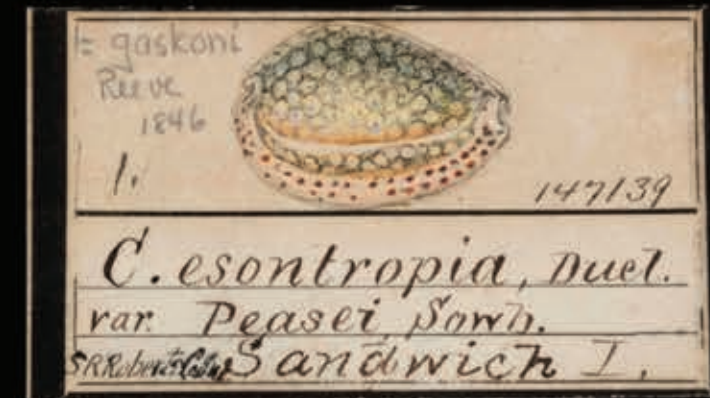 = gaskoni
Reeve
1846
1.
147139
C. esontropia, Ducl.
var. Peasei Sowb.
S R Roberts Coll. Sandwich I.